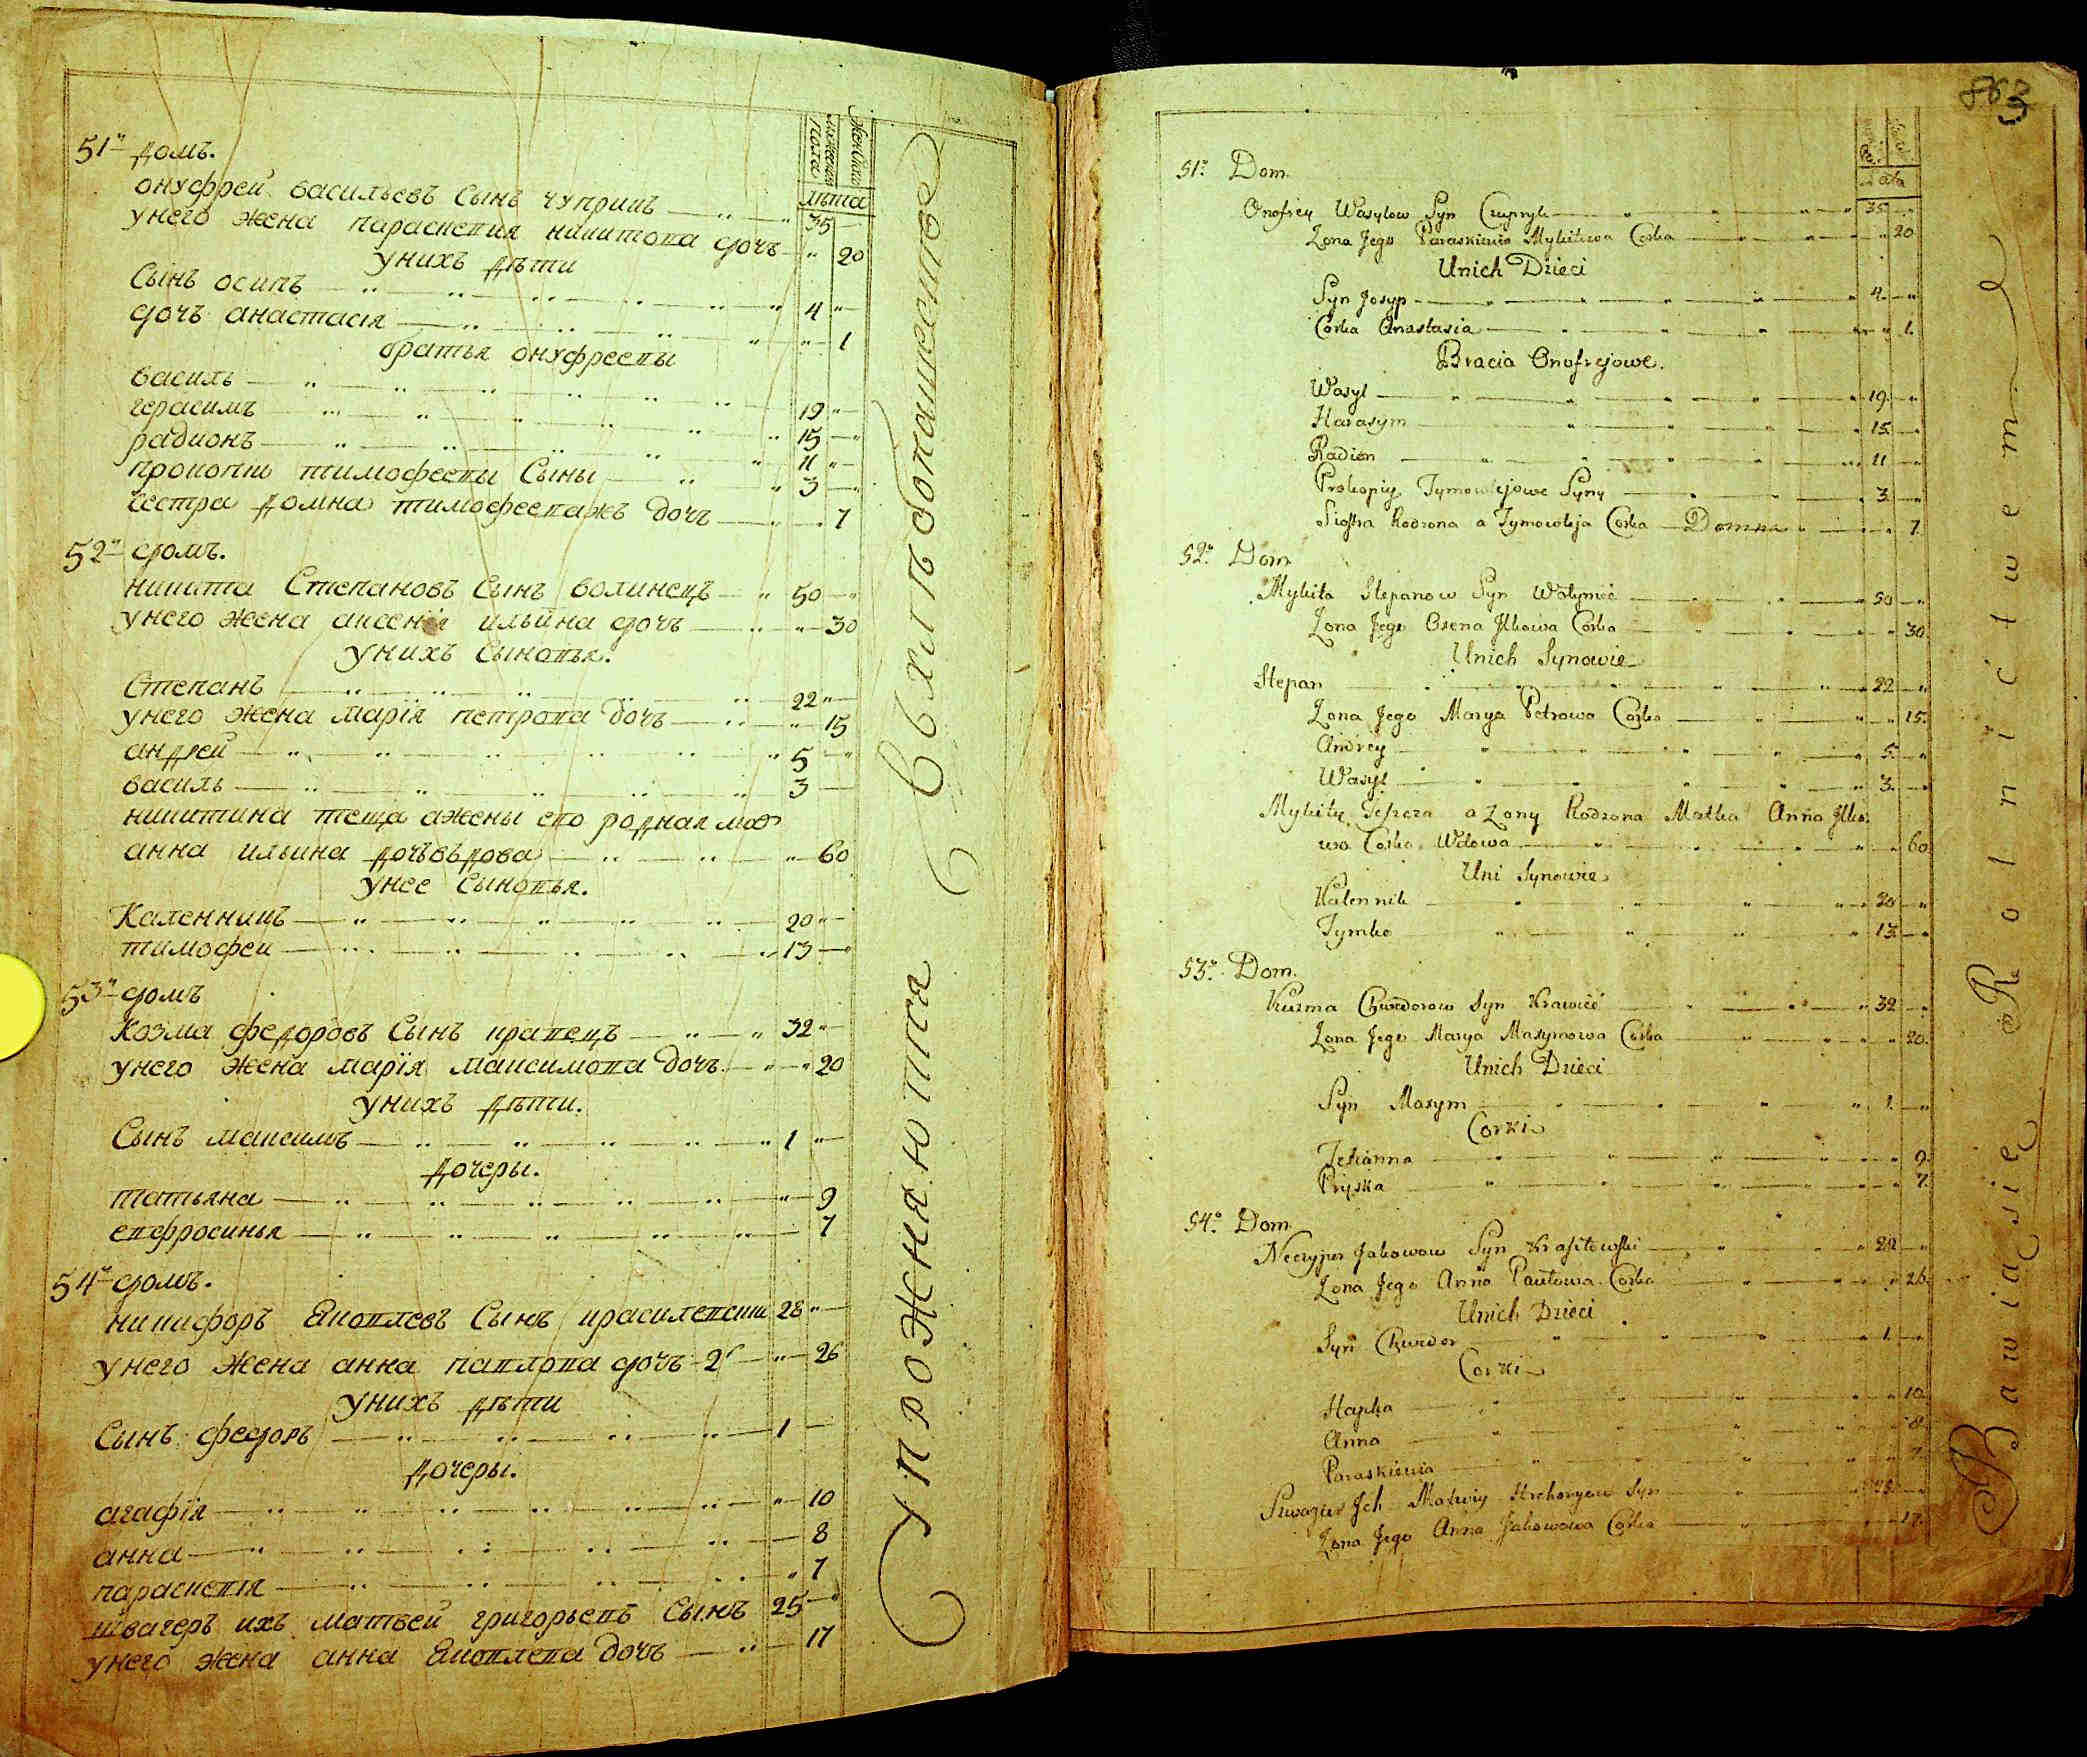 мужеска
пола
женска
лѣта
51й домъ.
онуфреи васильевъ Сынъ чуприкъ 35
унего жена параскевия никитова дочъ 20
унихъ дѣти
Сынъ осипъ 4
дочъ анастасія 1
братья онуфреевы
василь 19
герасимъ 15
радионъ 11
прокопıи тимофеевы Сыны 3
сестра домна тимофеева дочъ 7
52й домъ.
никита Степановъ Сынъ волинецъ 50
унего жена аксенія ильина дочъ 30
унихъ сыновья.
Степанъ 22
унего жена марїя петрова дочъ 15
андреи 5
василь 3
никитина теща ажены его родная мат
анна ильина дочъ вдова 60
унее сыновья.
Каленникъ 20
тимофеи 13
53й домъ
козма федоровъ Сынъ кравецъ 32
унего жена марїя максимова дочъ 20
унихъ дѣти.
Сынъ максимъ 1
дочеры.
татьяна 9
евфросинья 7
54й домъ.
никифоръ Яковлевъ Сынъ красилевски 28
унего жена анна павлова дочъ 26
унихъ дѣти
Сынъ федоръ 1
дочеры.
агафїя 10
анна 8
параскевїя 7
швагеръ ихъ матвей григорьевъ Сынъ 25
унего жена анна Яковлева дочъ 17
Упрожняютса Вхлѣбопашестве
863
51o Dom.
Onofrey Wasylow Syn Czupryk 35
Zona Jego Paraskiewia Mykitowa Corka 20
Unich Dzieci
Syn Josyp 4
Corka Anastasia 1
Bracia Onofrejowe.
Wasyl 19
Harasym 15
Radion 11
Prokopiy Tymowiejowe Syny 3
Siostra Rodzona a Tymowieja Corka Domna 7
52o Dom
Mykita Stepanow Syn Wołyniec 50
Zona Jego Oxena Jlkowa Corka 30
Unich Synowie
Stepan 22
Zona Jego Marya Petrowa Corka 15
Andrey 5
Wasyl 3
Mykity Teszcza a Zony Rodzona Matka Anna Jlko:
wa Corka Wdowa 60
Uni Synowie
Kalennik 20
Tymko 13
53o Dom.
Kuzma Chwedorow Syn Krawiec 32
Zona Jego Marya Maxymowa Corka 20
Unich Dzieci
Syn Maxym 1
Corki
Tetianna 9
Pryska 7
54o Dom
Neczypor Jakowow Syn Krasiłowski 28
Zona Jego Anna Pawłowa Corka 26
Unich Dzieci
Syn Chwedor 1
Corki
Hapka 10
Anna 8
Paraskiewia 7
Szwagier Jch Matwiy Hrehoryew Syn 25
Zona Jego Anna Jakowowa Corka 17
Bawią się Rolnictwem